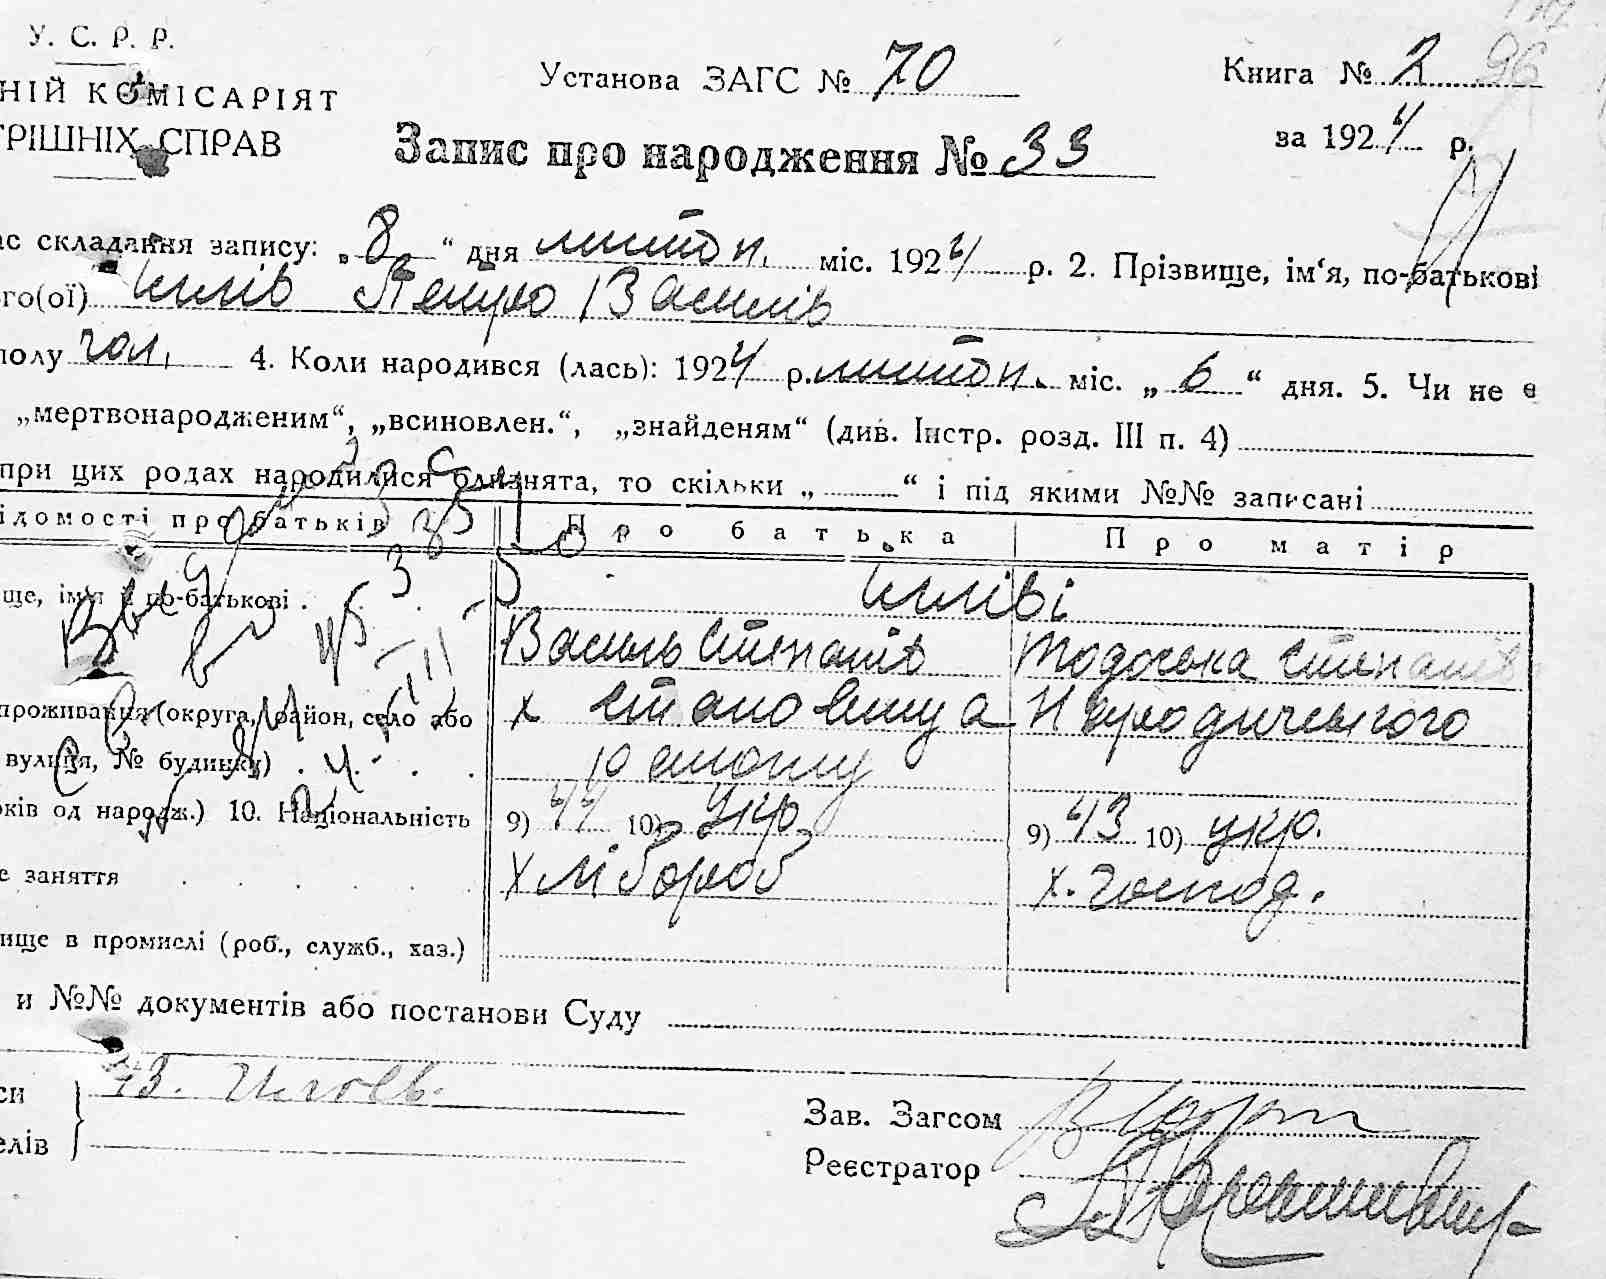 У. С. Р. Р.
НІЙ КОМІСАРІЯТ
ТРІШНІХ СПРАВ
Установа ЗАГС № 70
Книга № 2 96
за 1924 р.
Запис про народження № 33
ас складання запису: „8“ дня листоп. міс. 1924 р. 2. Прізвище, ім‘я, по-батькові
ого(ої) Петро Василів
полу чол. 4. Коли народився (лась): 1924 р. листоп. міс. „6“ дня. 5. Чи не є
„мертвонародженим“, „всиновлен.“, „знайденям“ (див. Інстр. розд. III п. 4)
при цих родах народилися близнята, то скільки „ “ і під якими №№ записані
ідомості про батьків Про батька Про матір
ще, імя й по-батькові
Василь Степанів Тодоська Степанів
проживання (округа, район, село або х Становища Народицького
вулиця, № будинку) району
оків од народж.) 10. Національність 9) 44 10) Укр. 9) 43 10) укр.
е заняття хлібороб х. господ.
ище в промислі (роб., служб., хаз.)
и №№ документів або постанови Суду
си
елів
Зав. Загсом
Реєстратор